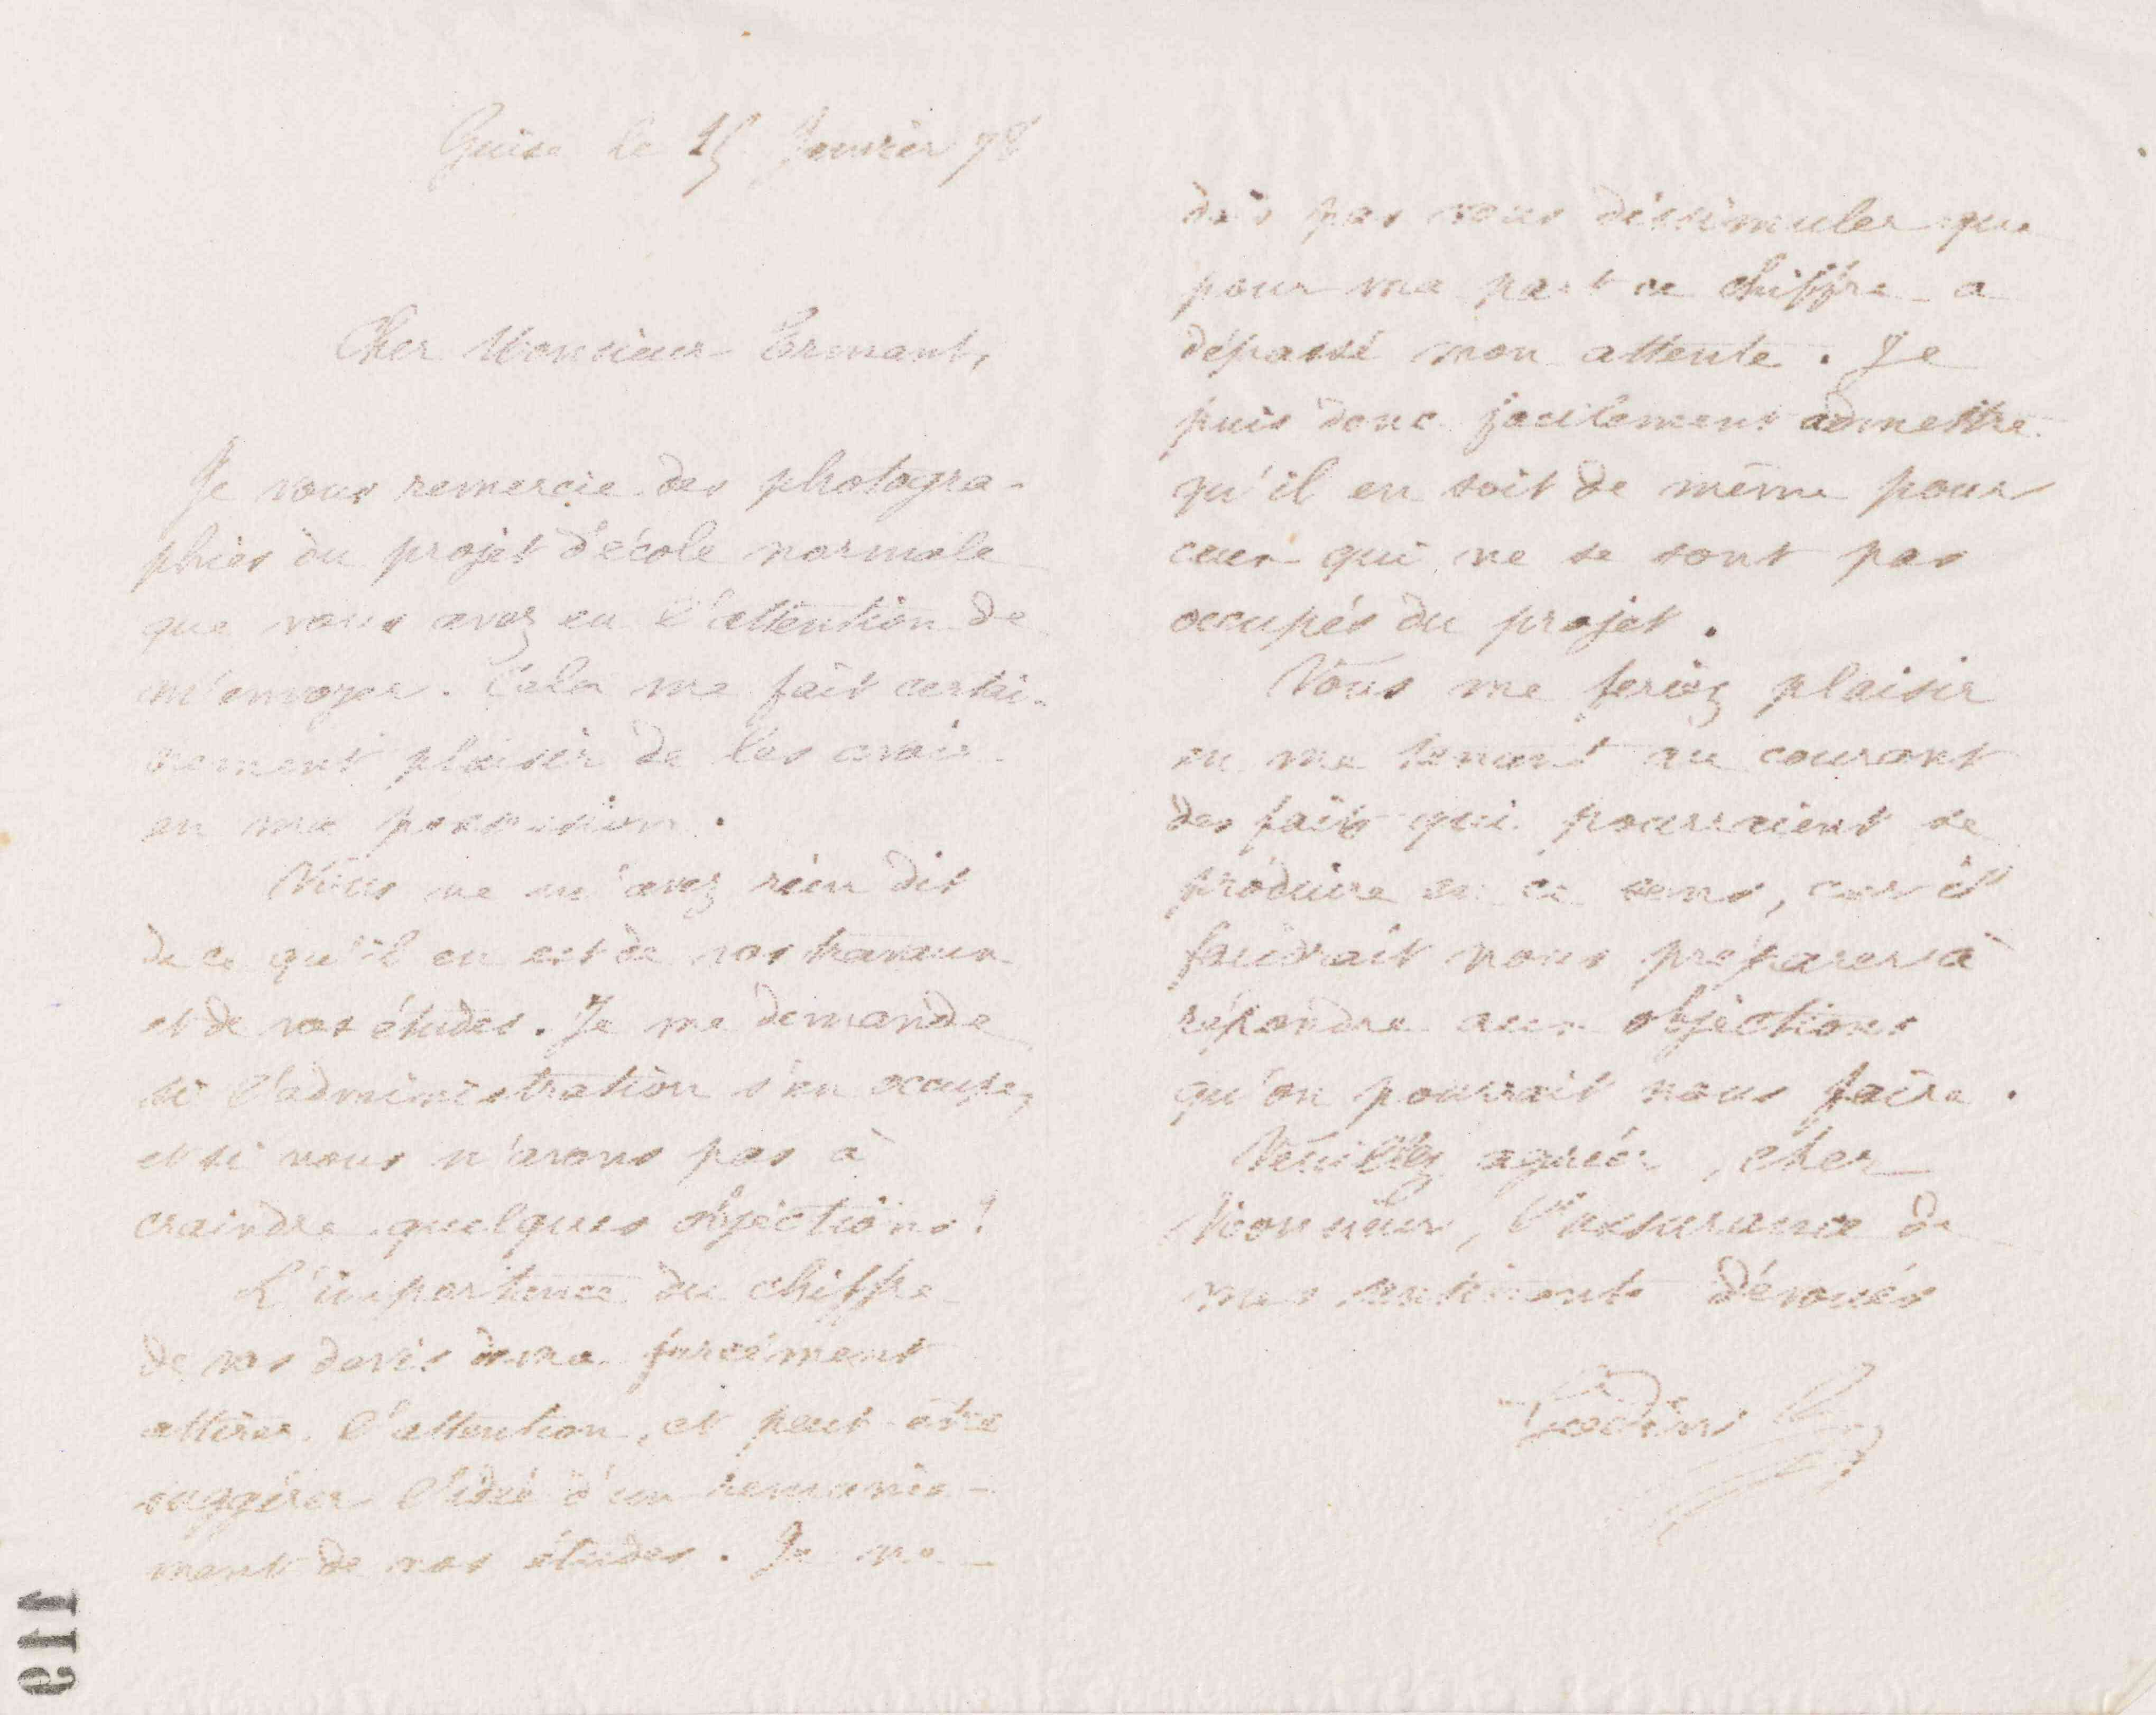 Guise le 15 Janvier 78
Cher Monsieur Ermant,
Je vous remercie des photogra-
phies du projet d'école normale
que vous avez eu l'attention de
m'envoyer. Cela me fait certai-
nement plaisir de les avoir
en ma possession.
Vous ne m'avez rien dit
de ce qu'il en est de nos travaux
et de nos études. Je me demande
si l'administration s'en occupe,
et si nous n'avons pas à
craindre quelques objections?
L'importance du chiffre
de nos devis devra forcément
attirer l'attention, et peut-être
suggérer l'idée d'un remanie-
ment de nos études. Je ne
dois pas vous dissimuler que
pour ma part ce chiffre a
dépassé mon attente. Je
puis donc facilement admettre
qu'il en soit de même pour
ceux qui ne se sont pas
occupés du projet.
Vous me feriez plaisir
en me tenant au courant
des faits qui pourraient se
produire en ce sens, car il
faudrait nous préparer à
répondre aux objections
qu'on pourrait nous faire.
Veuillez agréer, cher
Monsieur, l'assurance de
mes sentiments dévoués
Godin
119